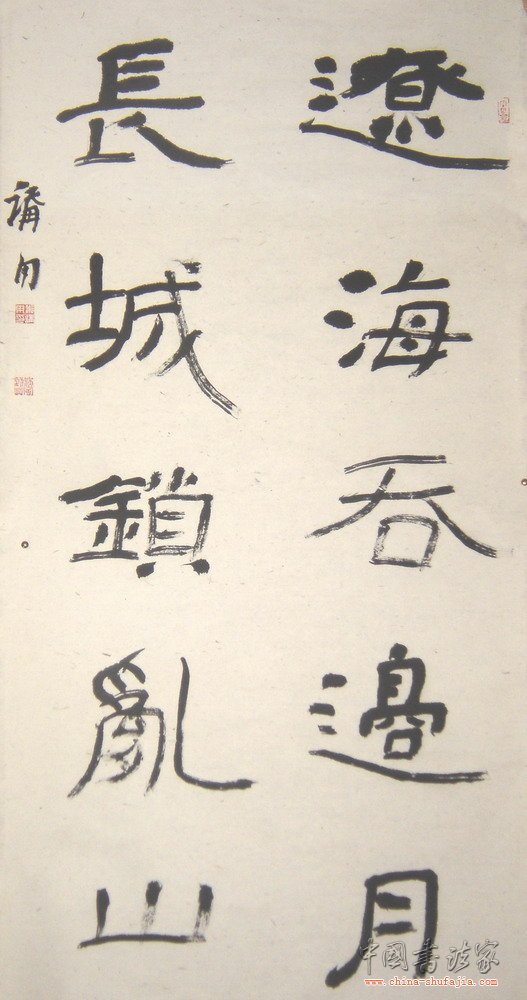 遼海吞邊月
長城鎖亂山
中国书法家
www.china-shufajia.com